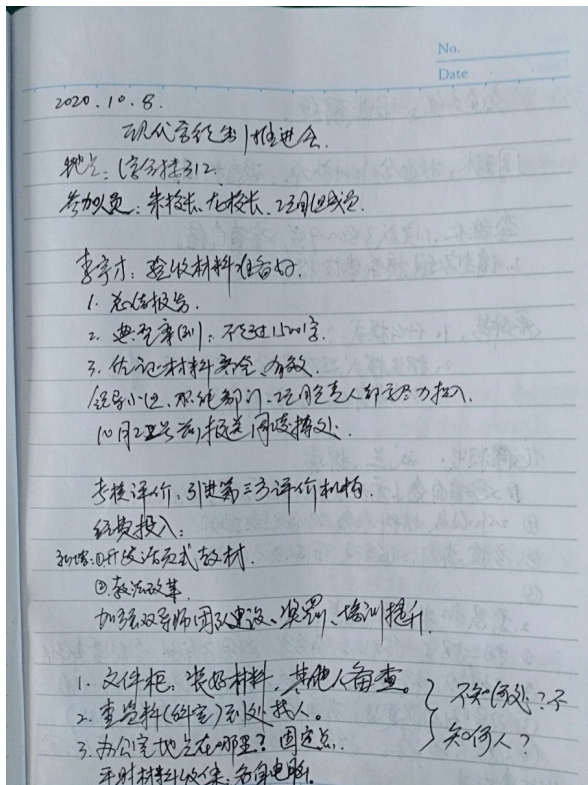 No.
Date
2020.10.8.
现代学徒制推进会.
地点: 综合楼312
参加人员: 朱校长、龙校长、项目组成员.
李宇才: 验收材料准备好.
1. 总结报告.
2. 典型案例: 不超过1500字.
3. 佐证材料齐全、有效.
领导小组、职能部门、项目负责人都要尽力投入.
10月22号前报送
考核评价: 引进第三方评价机构.
经费投入:
①开发活页式教材.
②教法改革.
加强双导师团队建设、奖罚、培训提升.
1. 文件柜: 装好材料, 其他人备查。
2. 查资料(科室)到处找人。
3. 办公室地点在哪里? 固定点.
平时材料收集: 各自电脑.
不知何处? 不
知何人?